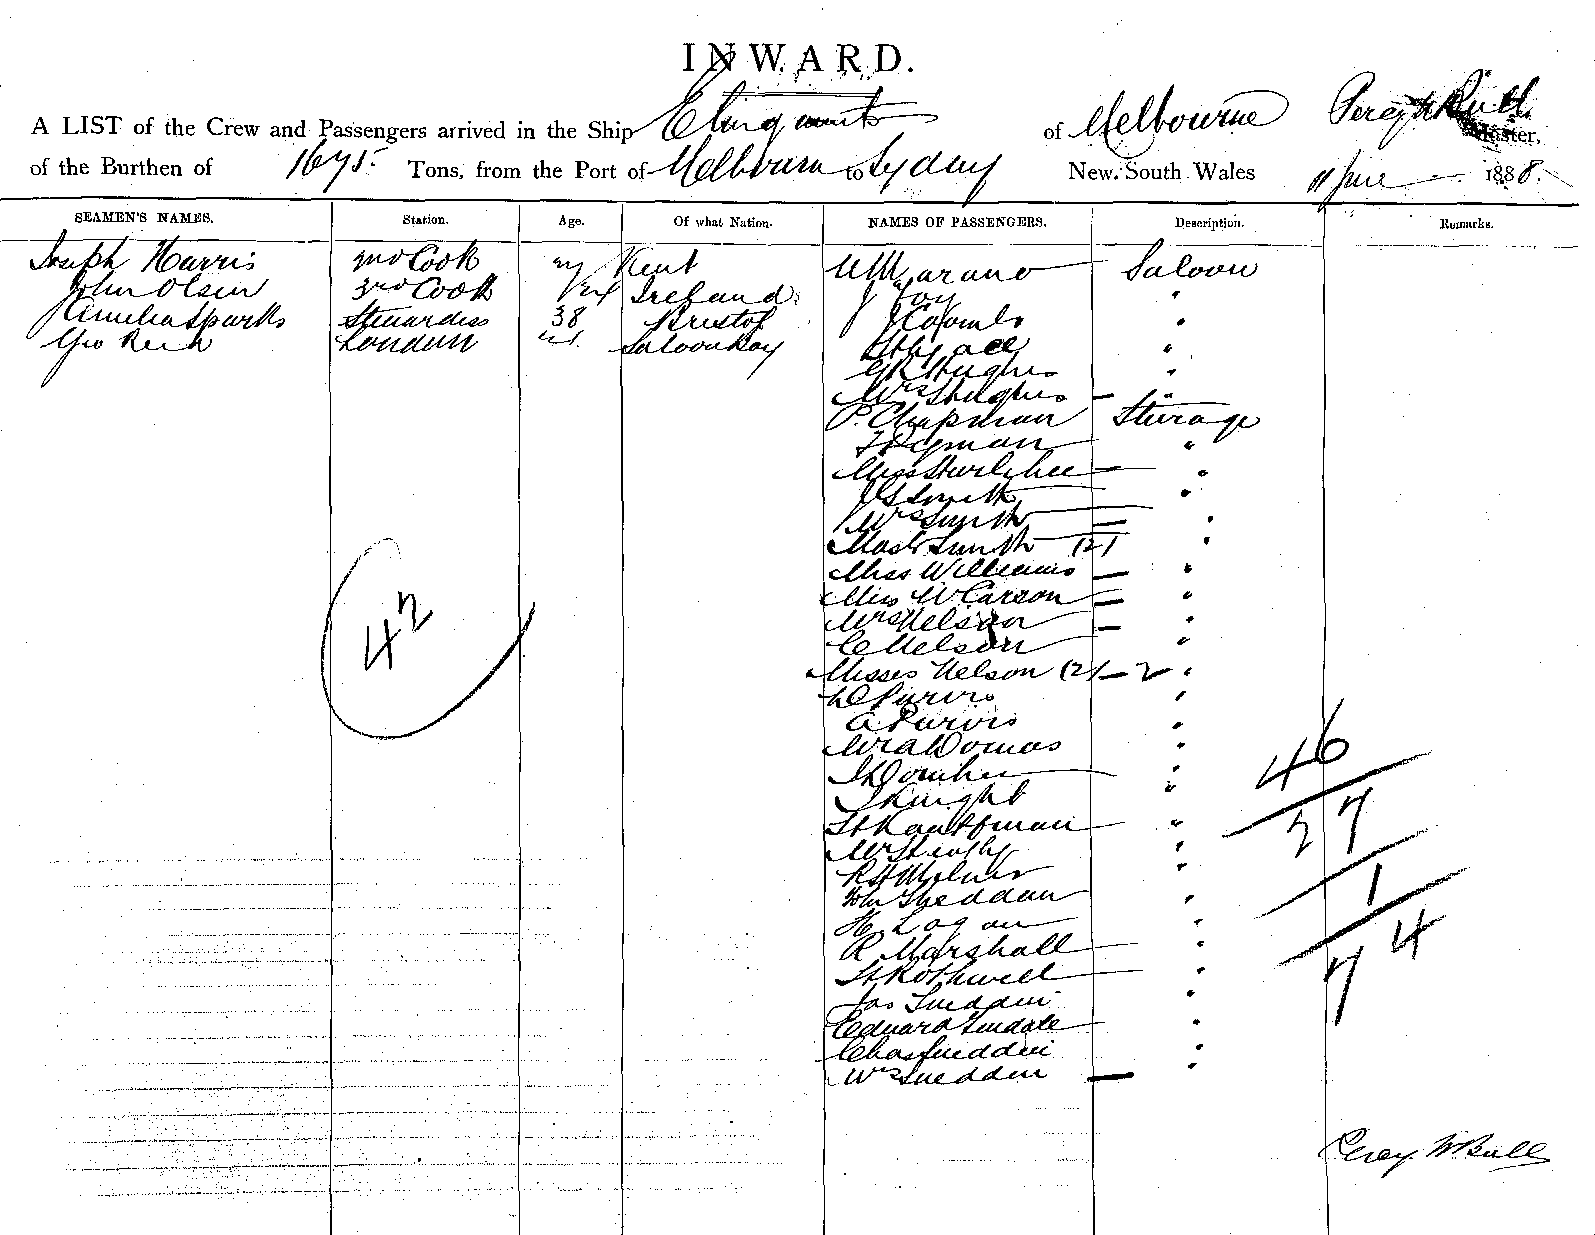 INWARD.
A LIST of the Crew and Passengers arrived in the Ship of Melbourne Master,
of the Burthen of 1675 Tons, from the Port of Melbourn to Sydney New South Wales 11 June 1888.
SEAMEN'S NAMES. Station. Age. Of what Nation. NAMES OF PASSENGERS. Description. Remarks.
Joseph Harris 2nd Cook Kent Saloon
John Olsen 3rd Cook Ireland J Foy "
Amelia Sparks Stewardess 38 Bristol J Coombs "
Geo London Saloon Boy "
G R Hughes "
Mrs Hughes - "
P. Chapman Steerage
"
Miss - "
J S Smith "
Mrs Smith - "
Mast Smith (2) "
Miss Williams - "
Miss McCarson - "
Mrs Nelson - "
C Nelson "
Misses Nelson (2) - 2 "
Purvis "
A Purvis "
"
"
J Knight "
H Kauffman "
"
"
John Sneddon "
H Logan "
R Marshall "
H Rothwell "
Jas Sneddin "
Edward Tindale "
Chas Sneddin "
Mrs Sneddin -
42
46
27
1
74
Percy W Bull